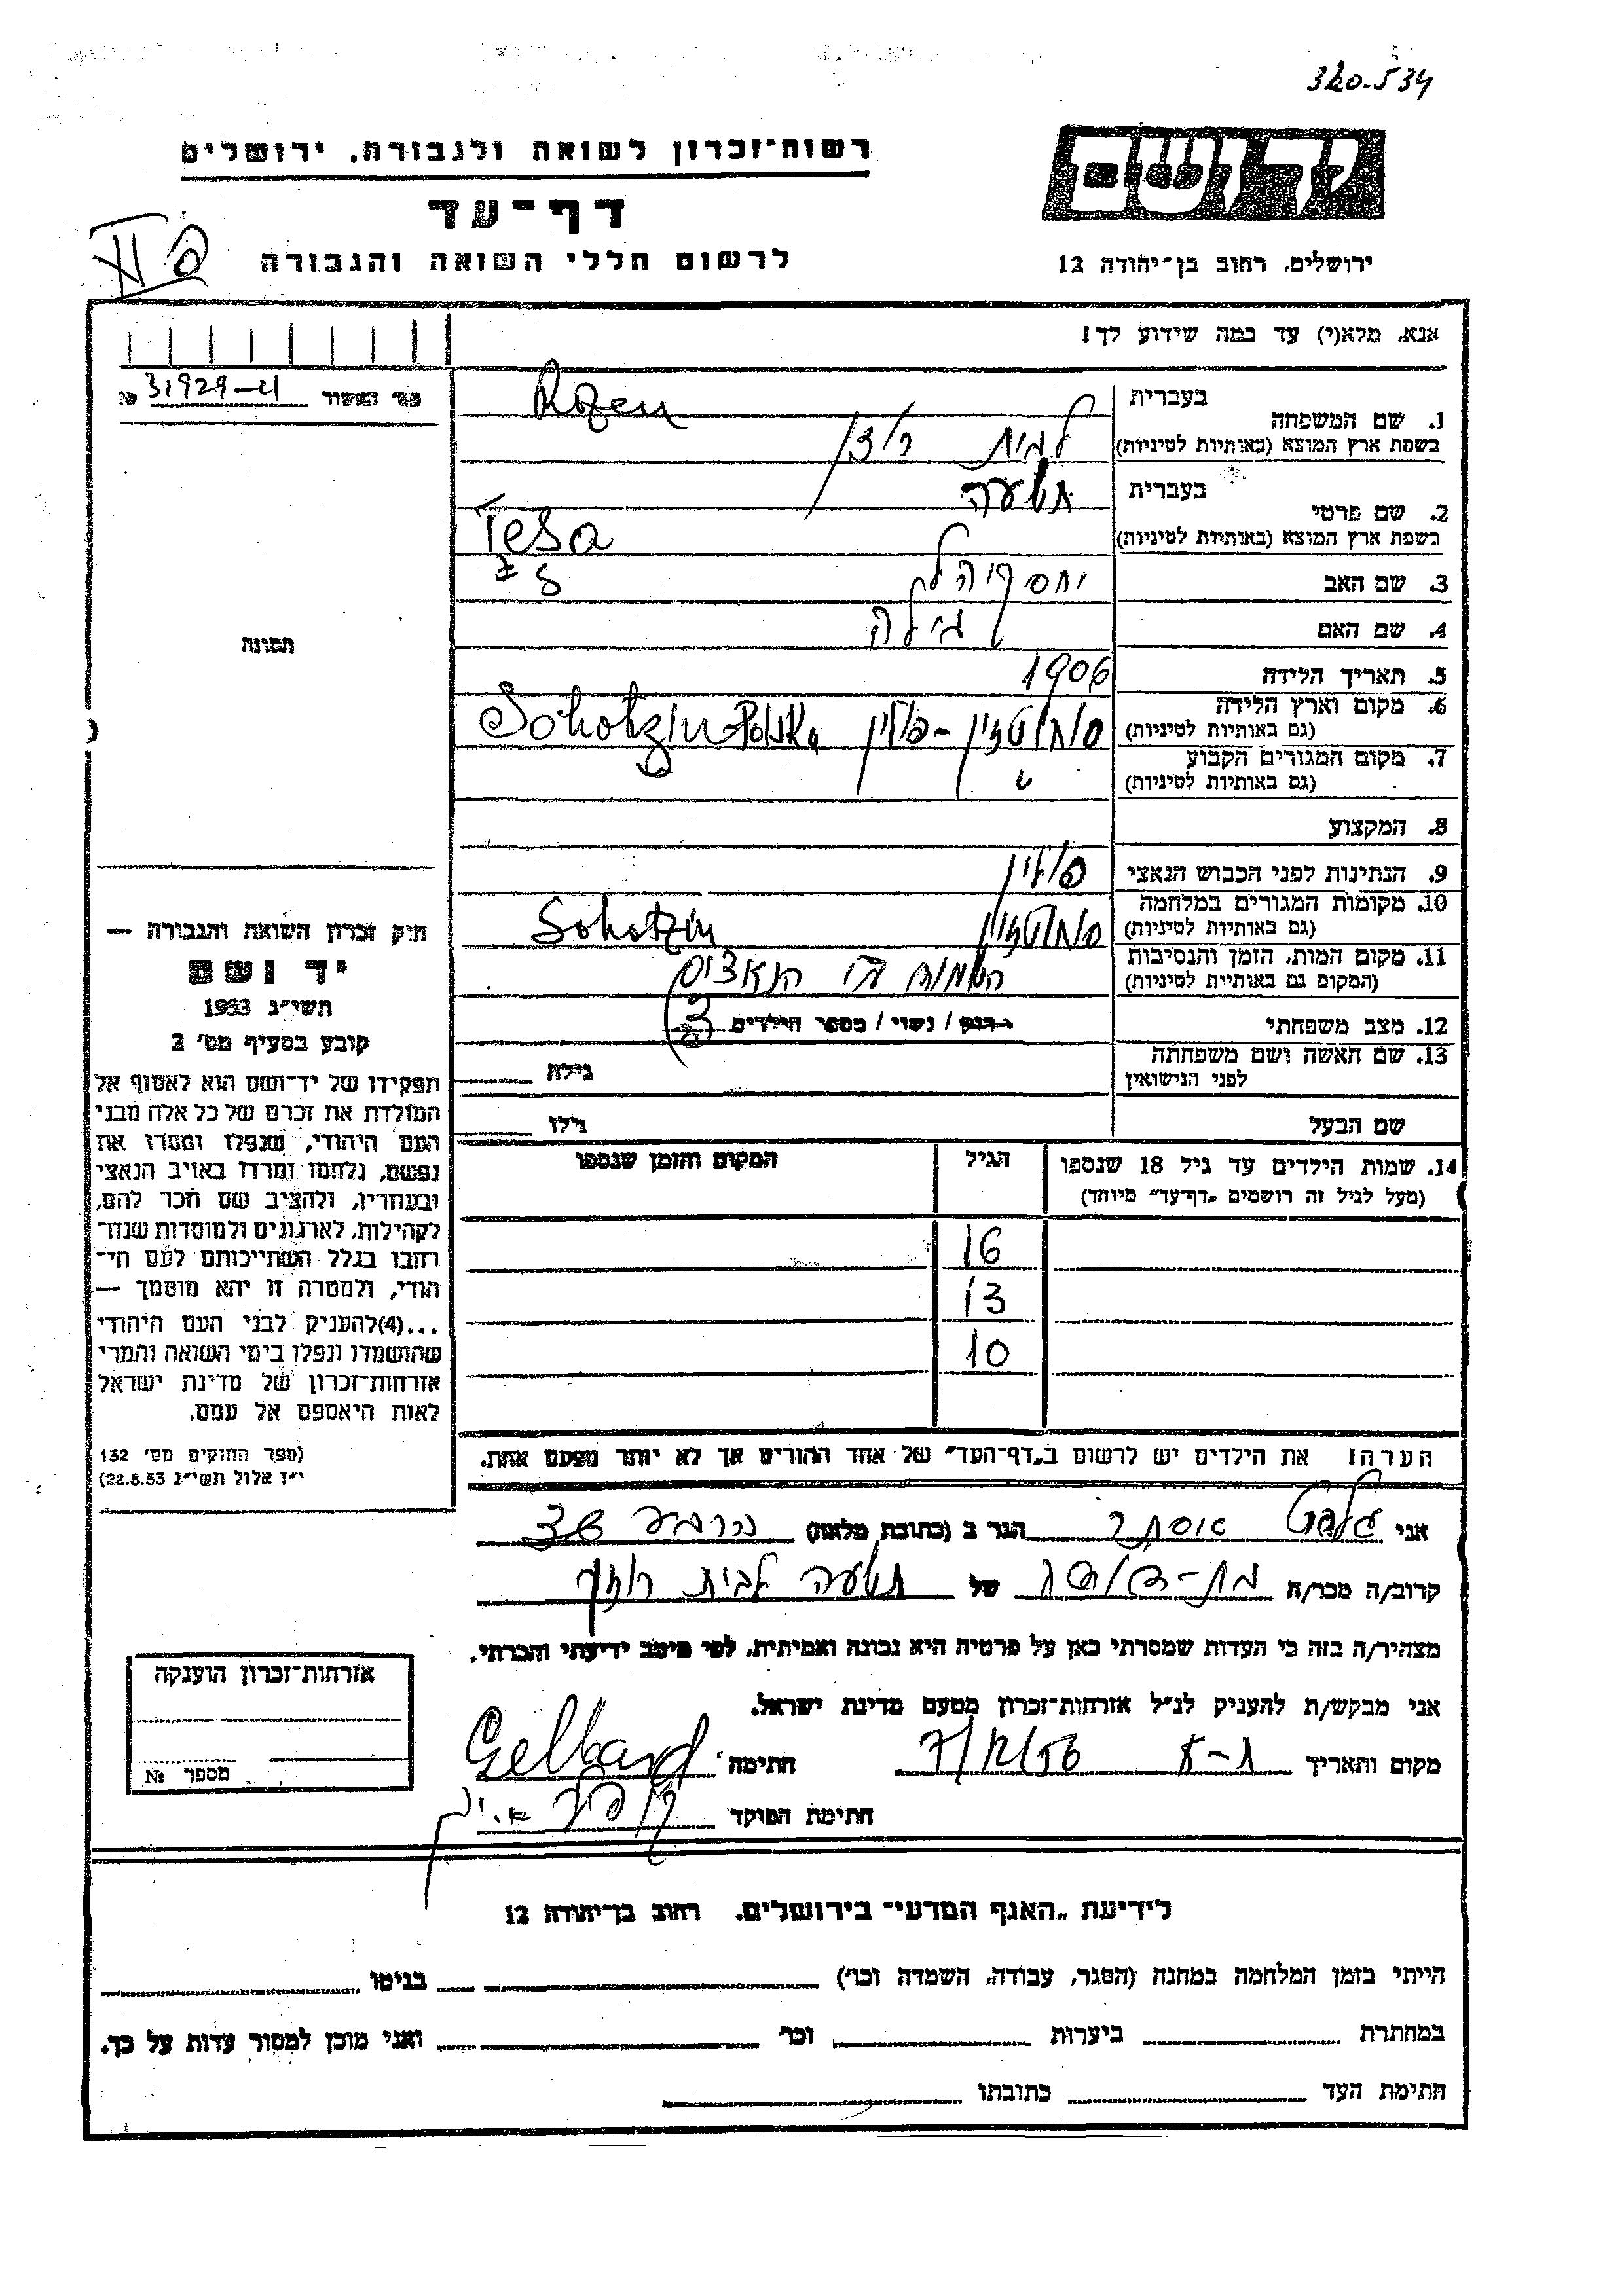 320-534
רשות-זכרון לשואה ולגבורה, ירושלים
דף-עד
לרשום חללי השואה והגבורה
יד ושם
ירושלים, רחוב בן-יהודה 12
אנא, מלא(י) עד כמה שידוע לך!
מס' האשור 31929-4 №
תמונה
1. שם המשפחה בעברית
Rozen
בשפת ארץ המוצא (באותיות לטיניות)
לבית רוזן
2. שם פרטי בעברית
תשעה
בשפת ארץ המוצא (באותיות לטיניות)
Tesa
3. שם האב
4. שם האם
5. תאריך הלידה 1906
6. מקום וארץ הלידה סוחוטצין - פולין Sohotzin
(גם באותיות לטיניות)
7. מקום המגורים הקבוע
(גם באותיות לטיניות)
8. המקצוע
9. הנתינות לפני הכבוש הנאצי פולין
10. מקומות המגורים במלחמה סוחוטצין Sohotzin
(גם באותיות לטיניות)
11. מקום המות, הזמן והנסיבות הנאצים
(המקום גם באותיות לטיניות)
12. מצב משפחתי רווק / נשוי / מספר הילדים 3
13. שם האשה ושם משפחתה גילה
לפני הנישואין
שם הבעל גילו
14. שמות הילדים עד גיל 18 שנספו הגיל המקום והזמן שנספו
(מעל לגיל זה רושמים "דף-עד" מיוחד)
16
13
10
הערה: את הילדים יש לרשום ב"דף-העד" של אחד ההורים אך לא יותר מפעם אחת.
חוק זכרון השואה והגבורה —
יד ושם
תשי"ג 1953
קובע בסעיף מס' 2
תפקידו של יד-ושם הוא לאסוף אל
המולדת את זכרם של כל אלה מבני
העם היהודי, שנפלו ומסרו את
נפשם, נלחמו ומרדו באויב הנאצי
ובעוזריו, ולהציב שם וזכר להם,
לקהילות, לארגונים ולמוסדות שנח-
רבו בגלל השתייכותם לעם הי-
הודי, ולמטרה זו יהא מוסמך —
...(4)להעניק לבני העם היהודי
שהושמדו ונפלו בימי השואה והמרי
אזרחות-זכרון של מדינת ישראל
לאות היאספם אל עמם.
(ספר החוקים מס' 132
י"ז אלול תשי"ג 28.8.53)
אני אסתר הגר ב (כתובת מלאה)
קרוב/ה מכר/ה בת-דודה של תשעה לבית רוזן
מצהיר/ה בזה כי העדות שמסרתי כאן על פרטיה היא נכונה ואמיתית, לפי מיטב ידיעתי והכרתי.
אני מבקש/ת להעניק לנ"ל אזרחות-זכרון מטעם מדינת ישראל.
מקום ותאריך ת-א 7/12/56 חתימה Gelbard
חתימת הפוקד
אזרחות-זכרון הוענקה
מספר №
לידיעת "האגף המדעי" בירושלים, רחוב בן-יהודה 12
הייתי בזמן המלחמה במחנה (הסגר, עבודה, השמדה וכו') בגיטו
במחתרת ביערות וכו' ואני מוכן למסור עדות על כך.
חתימת העד כתובתו